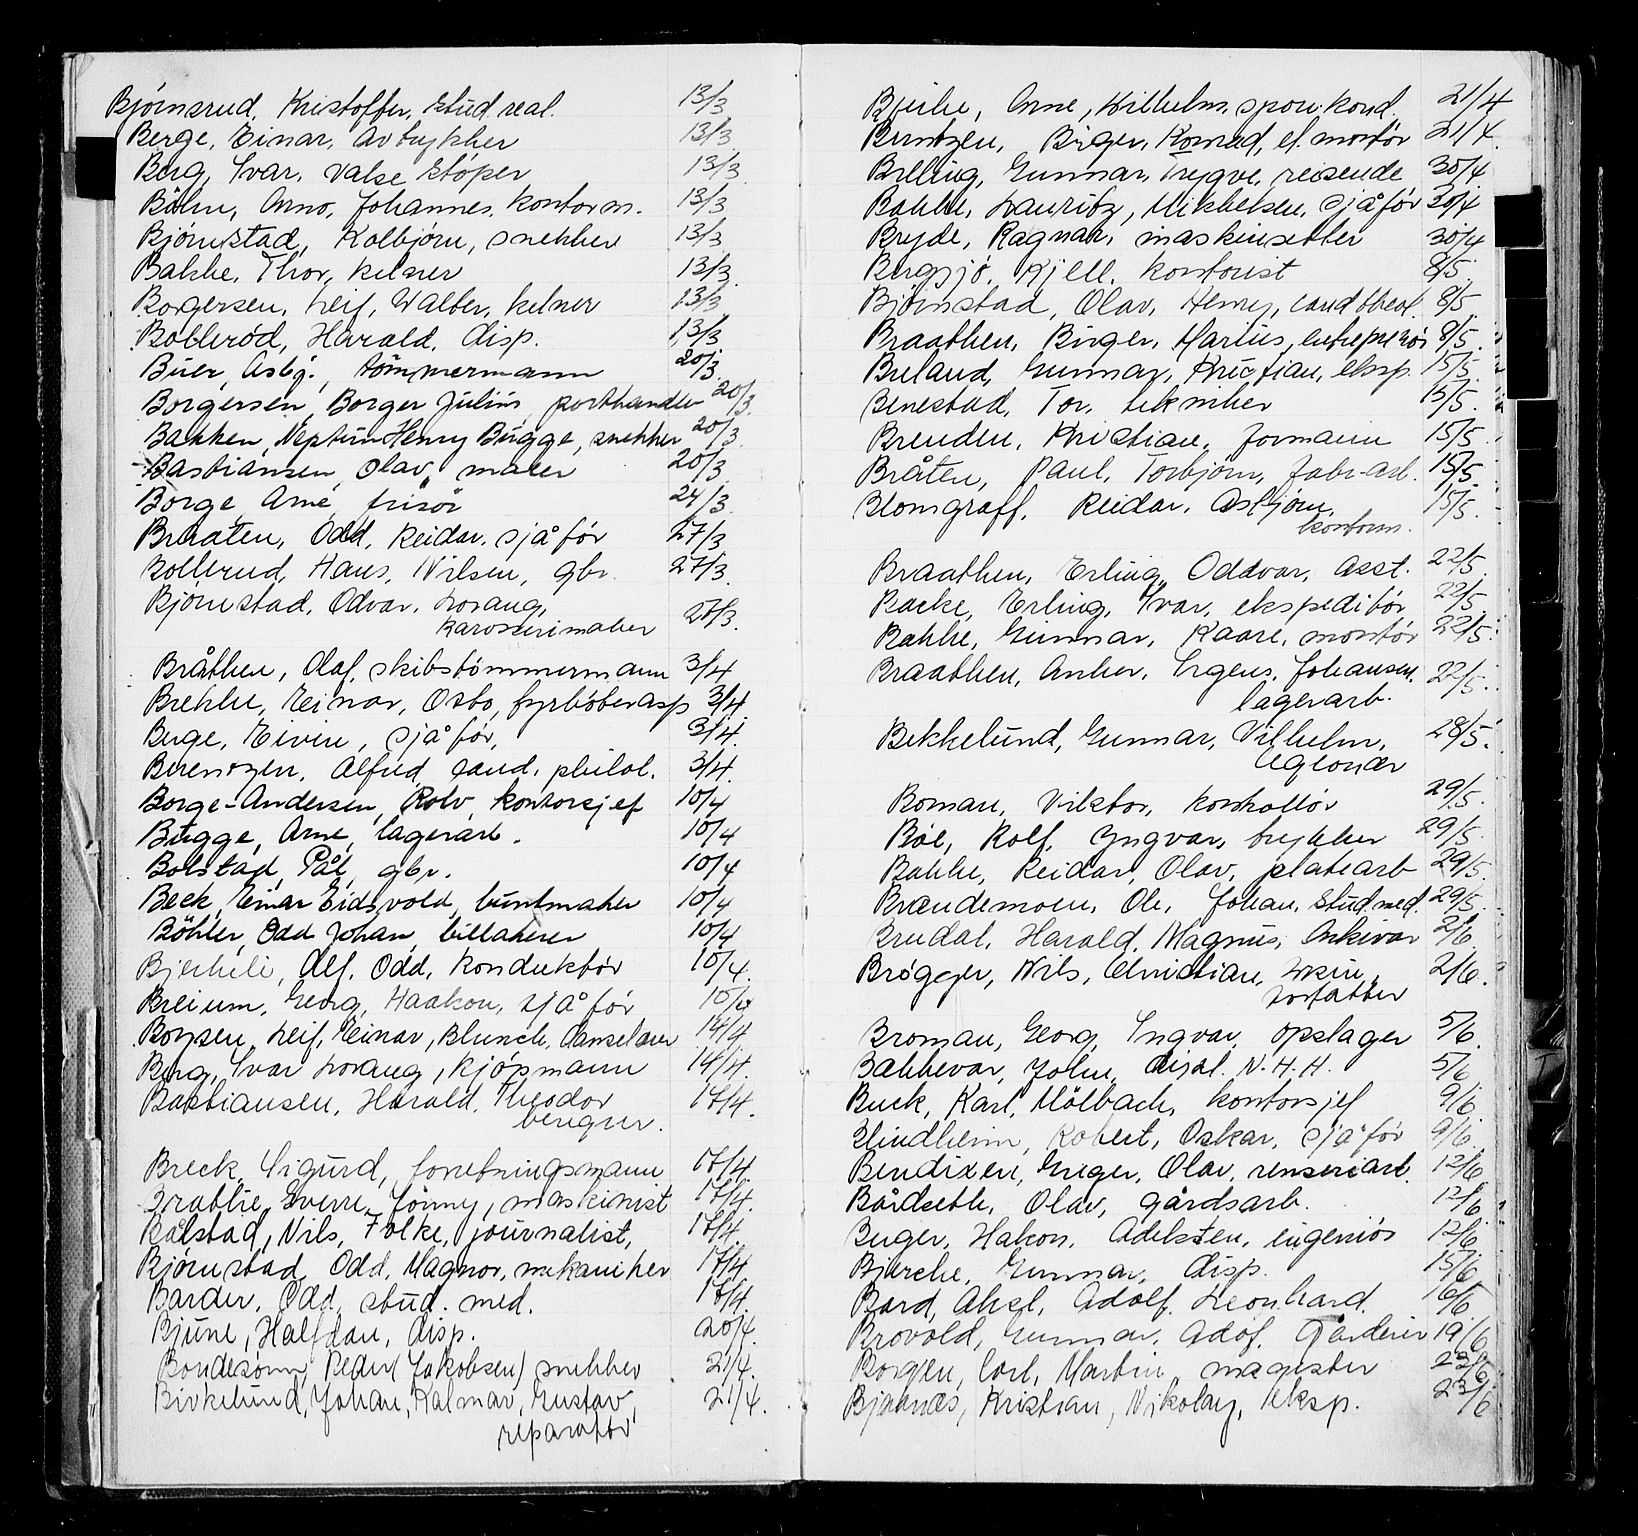 Bjørnsrud, Kristoffer, stud. real. 13/3
Berge, Einar, avtrykker 13/3
Berg, Ivar, valse støper 13/3
Böhn, Arno, Johannes, kontorm. 13/3
Bjørnstad, Kolbjørn, snekker 13/3
Bakke, Thor, kelner 13/3
Borgersen, Leif, Walter, kelner 13/3
Bøllerød, Harald, disp. 13/3
Buer, Asbj., tömmermann 20/3
Borgersen, Borger Julius, porthandler 20/3
Bakken, Neptun Henry Bugge, snekker 20/3
Bastiansen, Olav, maler 20/3
Borge, Arne, frisör 24/3
Braaten, Odd, Reidar, sjåför 27/3
Bøllerud, Hans, Nilsen, gbr. 27/3
Bjørnstad, Odvar, Lorang, 27/3
karosserimaker
Bråthen, Olaf, skibstömmermann 3/4
Brekke, Reinar, Osbo, fyrbøter asp 3/4
Berge, Eivin, sjåför, 3/4
Berentzen, Alfred, cand. philol. 3/4
Borge-Andersen, Rolv, kontorsjef 10/4
Bugge, Arne, lagerarb. 10/4
Bolstad, Pål, gbr. 10/4
Beck, Einar Eidsvold, buntmaker 10/4
Böhler, Odd Johan, billakerer 10/4
Bjerkeli, Alf, Odd, konduktør 10/4
Breium, Georg, Haakon, sjåför 10/4
Boysen, Leif, Reinar, Blunch, danselærer 14/4
Berg, Ivar Lorang, kjøpmann 14/4
Bastiansen, Harald, Theodor 17/4
Breck, Sigurd, forretningsmann 17/4
Bratlie, Sverre, Jönny, maskinist 17/4
Bålstad, Nils, Folke, journalist, 17/4
Bjørnstad, Odd, Magnor, mekaniker 17/4
Barder, Odd, stud. med. 17/4
Bjune, Halfdan, disp. 20/4
Bondesønn, Peder (Jakobsen) snekker 21/4
Birkelund, Johan, Kalmar, Gustav, 21/4
reparatör
Bjerke, Arne, Wilhelm, sporv.kond. 21/4
Berntzen, Birger, Konrad, el. montør 21/4
Billing, Gunnar, Trygve, reisende 30/4
Bakke, Lauritz, Mikkelsen, sjåför 30/4
Bryde, Ragnar, maskinsetter 30/4
Bergsjø, Kjell, kontorist 8/5
Bjørnstad, Olav, Henry, cand theol. 8/5
Braathen, Birger, Marius, entreprenør 8/5
Breland, Gunnar, Kristian, eksp. 15/5
Benestad, Tor, tekniker 15/5
Brenden, Kristian, formann 15/5
Bråten, Paul, Torbjørn, fabr. arb. 15/5
Blomgraff, Reidar, Asbjørn, 15/5
kontorm.
Braathen, Erling, Oddvar, Asst. 22/5
Backe, Erling, Ivar, ekspeditör 22/5
Bakke, Gunnar, Kaare, montør 22/5
Braathen, Anker, Jrgens, Johansen, 22/5
lagerarb.
Bekkelund, Gunnar, Vilhelm, 28/5
Boman, Viktor, kontrollör 29/5
Bøe, Rolf, Yngvar, trykker 29/5
Bakke, Reidar, Olav, platearb 29/5
Brændemoen, Ole, Johan, stud. med. 29/5
Brudal, Harald, Magnus, Arkivar 2/6
Brøgger, Nils, Christian, 2/6
forfatter
Broman, Georg, Ingvar, opslager 5/6
Bakkevar, John, disp. N.H.H. 5/6
Buck, Karl, Mölbach, kontorsjef 9/6
Blindheim, Robert, Oskar, sjåför 9/6
Bendixen, Greger, Olav, renseriarb. 12/6
Bårdseth, Olav, gårdsarb. 12/6
Buger, Hakon, Adelsten, ingeniør 12/6
Bjerche, Gunnar, disp. 15/6
Bard, Aksl, Adolf, Leonhard. 16/6
Brovold, Gunnar, Adof, Gårdeier 19/6
Borgen, Carl, Martin, magister 23/6
Bjaanæs, Kristian, Nikolay, Eksp. 23/6